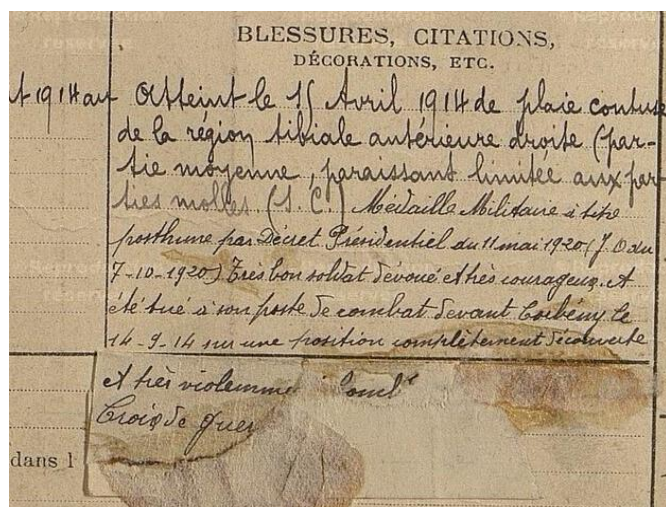 BLESSURES, CITATIONS,
DÉCORATIONS, ETC.
Atteint le 15 Avril 1914 de plaie contuse
de la région tibiale antérieure droite (par-
tie moyenne, paraissant limitée aux par
ties molles (S. C.) Médaille Militaire à titre
posthume par Décret Présidentiel du 11 mai 1920 (J. O du
7-10-1920) Très bon soldat dévoué et très courageux. A
été tué à son poste de combat devant Corbény le
14-9-14 sur une position complètement découverte
et très violemme
Croix de guer
dans l